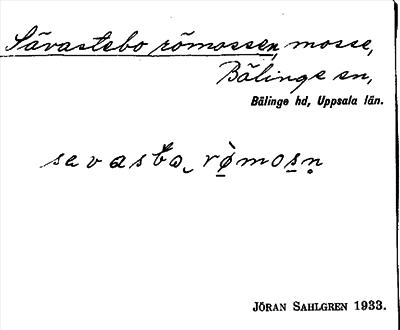 Sävastebo römossen, mosse,
Bälinge sn,
Bälinge hd, Uppsala län.
sɛvastɐ̀ rø̀mosn̥
JÖRAN SAHLGREN 1933.